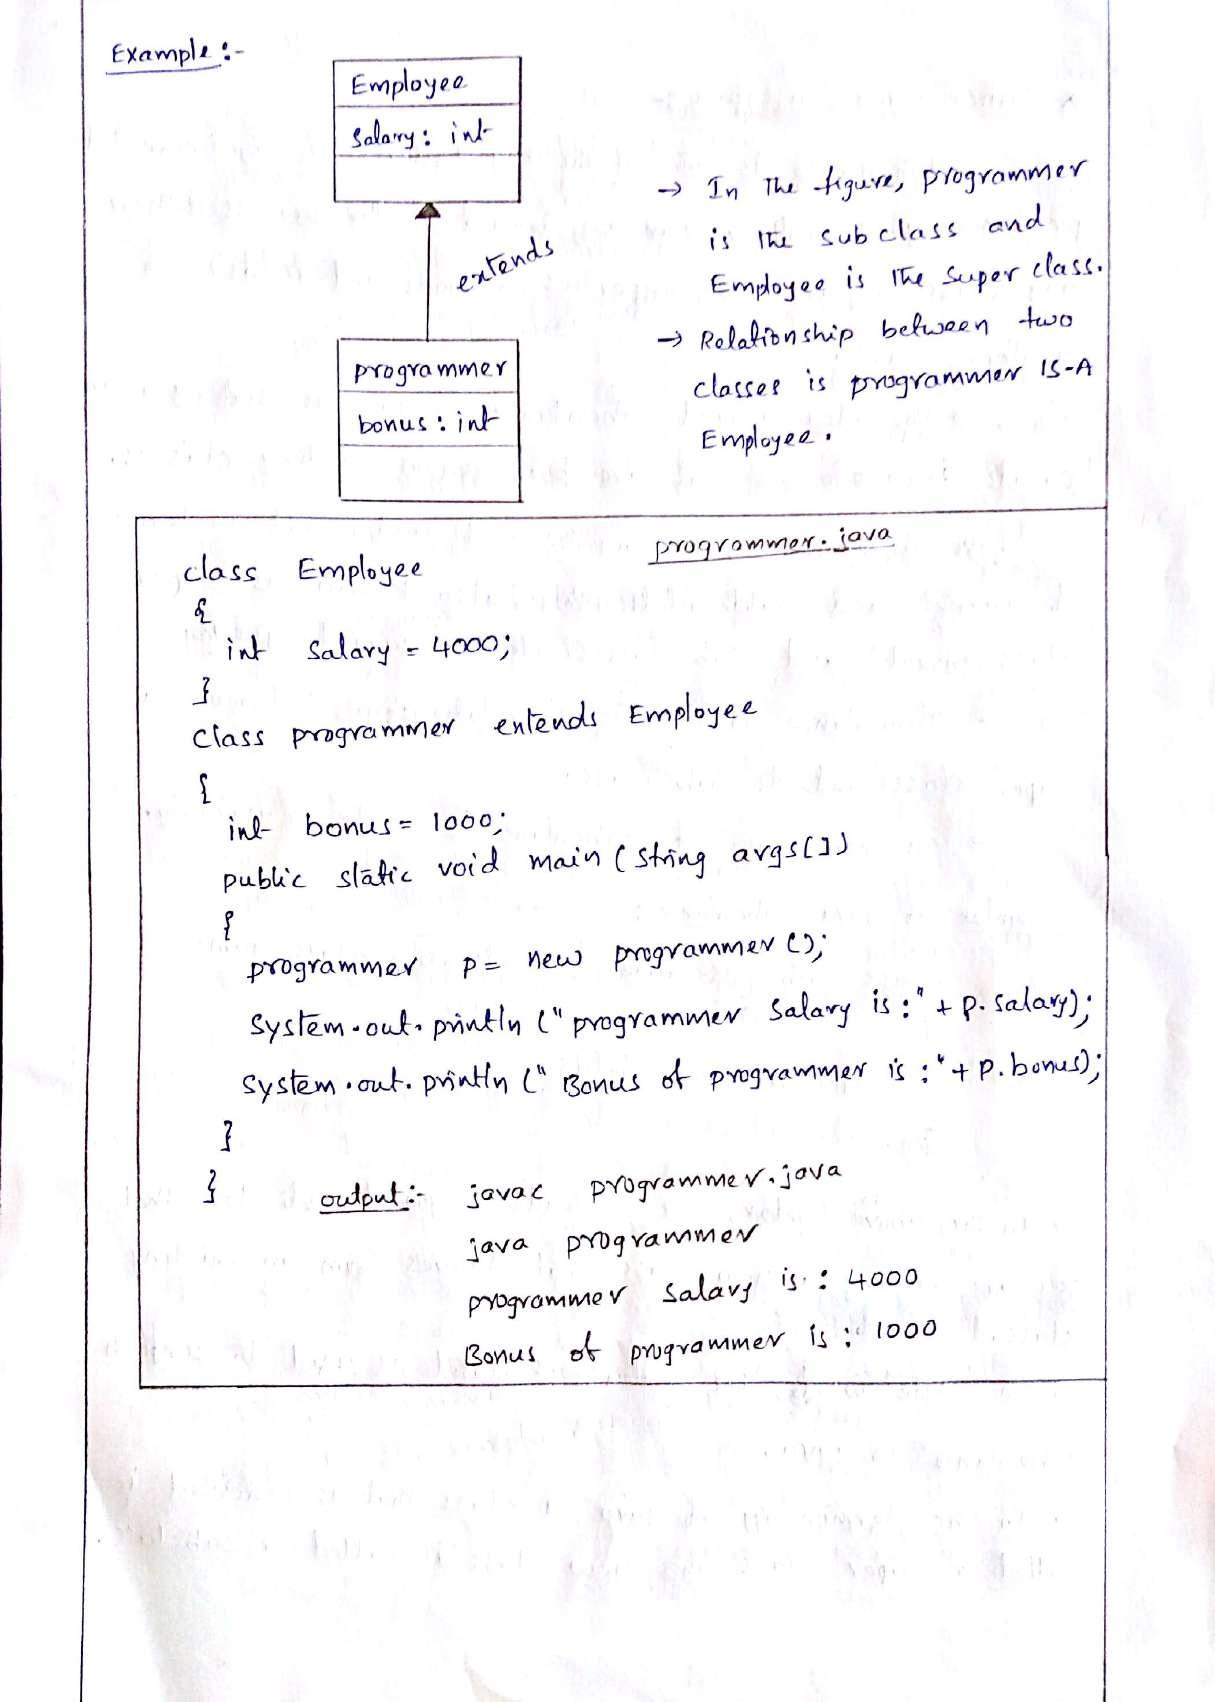 Example :-
Employee
Salary : int
extends
programmer
bonus : int
→ In The figure, programmer
is the sub class and
Employee is the super class.
→ Relationship between two
classes is programmer IS-A
Employee.
programmer.java
class Employee
{
int salary = 4000;
}
class programmer extends Employee
{
int bonus = 1000;
public static void main (string args[])
{
programmer p = new programmer ();
System.out.println ("programmer salary is :" + p.salary);
System.out.println ("Bonus of programmer is :" + p.bonus);
}
}
output :- javac programmer.java
java programmer
programmer salary is : 4000
Bonus of programmer is : 1000